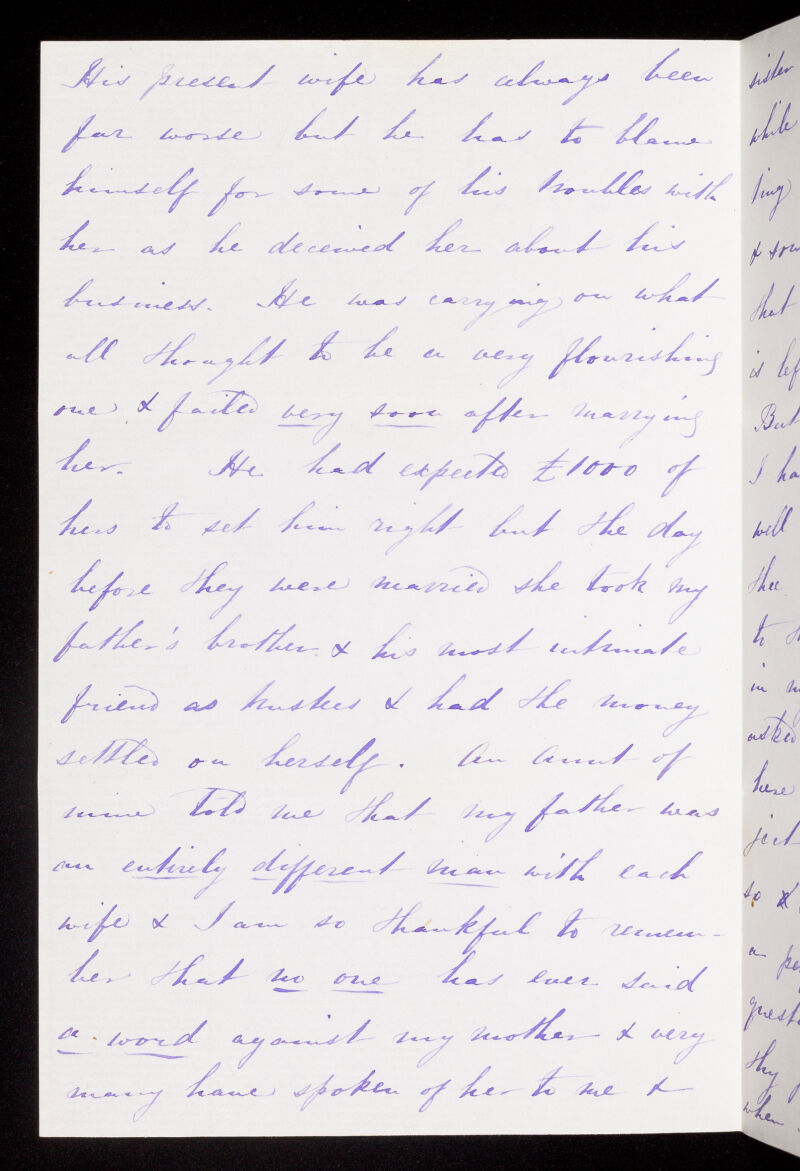 His present wife has always been
far worse but he has to blame
himself for some of his troubles with
her as he deceived her about his
business. He was carrying on what
all thought to be a very flourishing
one & failed very soon after marrying
her. He had expected £1000 of
hers to set him right but the day
before they were married she took my
father's brother & his most intimate
friend as trustees & had the money
settled on herself. An Aunt of
mine told me that my father was
an entirely different man with each
wife & I am so thankful to remem-
ber that no one has ever said
a word against my mother & very
many have spoken of her to me &
sister
while
ting
& sou
that
is lef
But
I ha
well
thee
to th
in m
asked
here
ject
so &
a pe
quest
thy
when